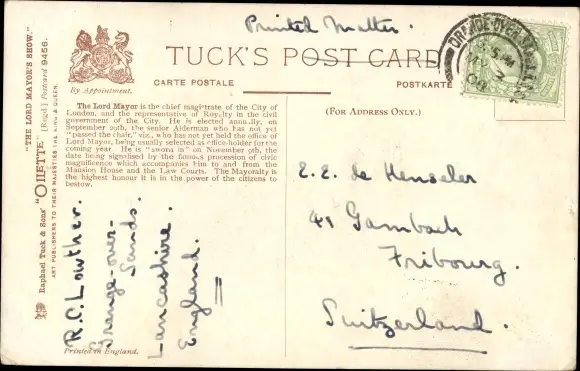 Printed Matter.
TUCK'S POST CARD
By Appointment.
CARTE POSTALE
POSTKARTE
(FOR ADDRESS ONLY.)
The Lord Mayor is the chief magistrate of the City of
London, and the representative of Royalty in the civil
government of the City. He is elected annually, on
September 29th, the senior Alderman who has not yet
"passed the chair," viz., who has not yet held the office of
Lord Mayor, being usually selected as office-holder for the
coming year. He is "sworn in" on November 9th, the
date being signalised by the famous procession of civic
magnificence which accompanies him to and from the
Mansion House and the Law Courts. The Mayoralty is
the highest honour it is in the power of the citizens to
bestow.
"THE LORD MAYOR'S SHOW."
Raphael Tuck & Sons' "OILETTE" [Regd.] Postcard 9456.
ART PUBLISHERS TO THEIR MAJESTIES THE KING & QUEEN.
R.C. Lowther.
Grange-over-
Sands.
Lancashire.
England.
E.E. de Henseler
41 Gambach
Fribourg.
Suitzerland.
Printed in England.